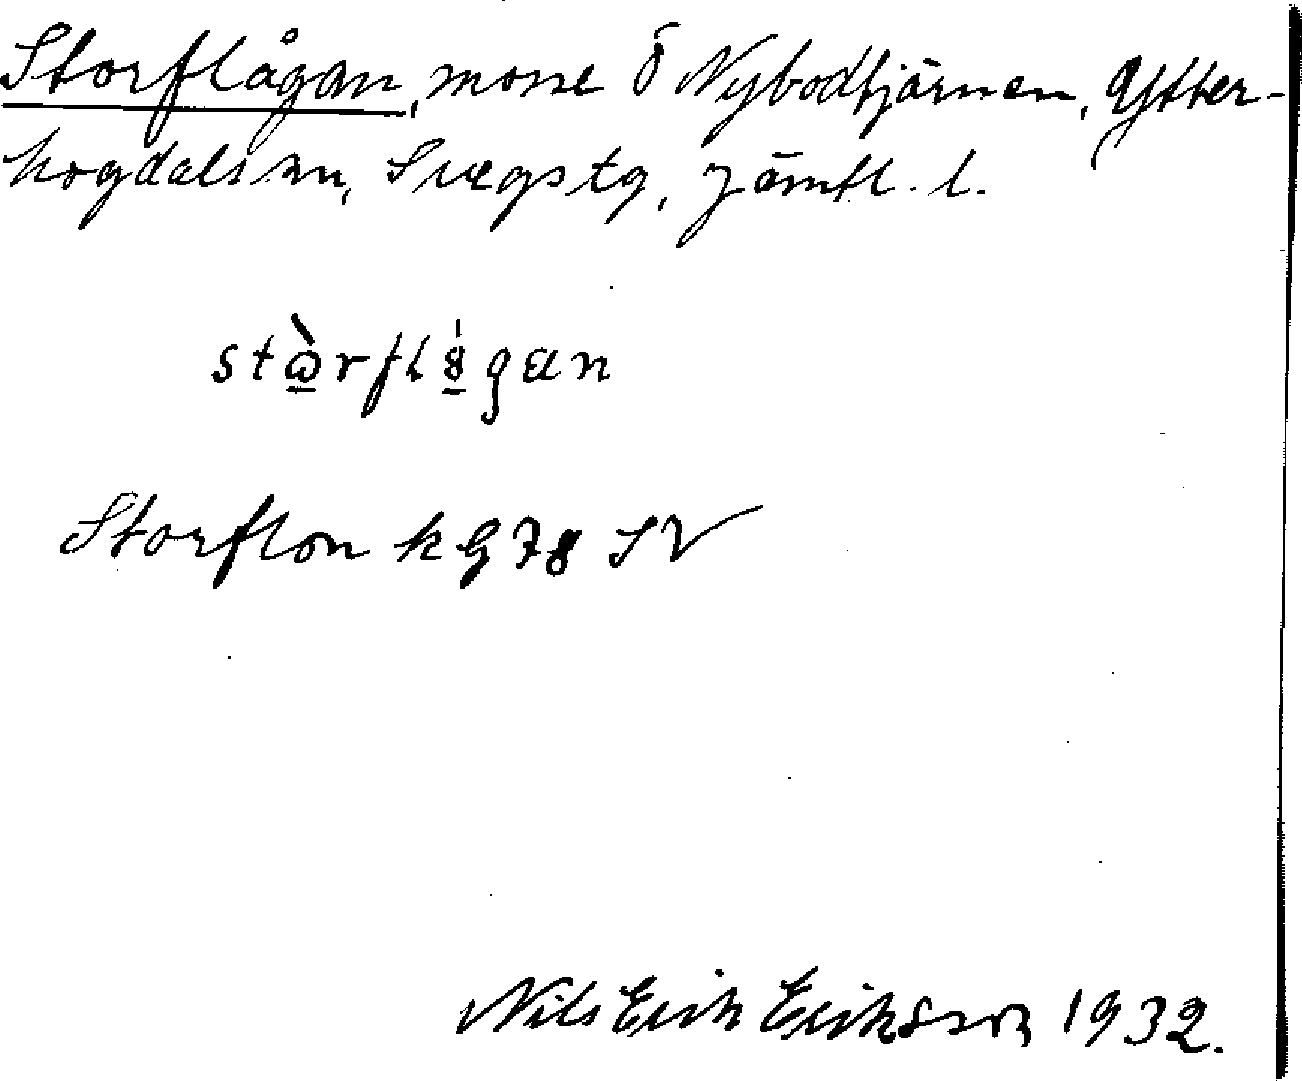 Storflågan, mosse ö Nybodtjärnen, Ytter-
hogdals sn, Svegs tg, Jämtl. l.
stὼ̲rfl8̲̍gan
Storflon k G 78 SV
Nils Erik Eriksson 1932.